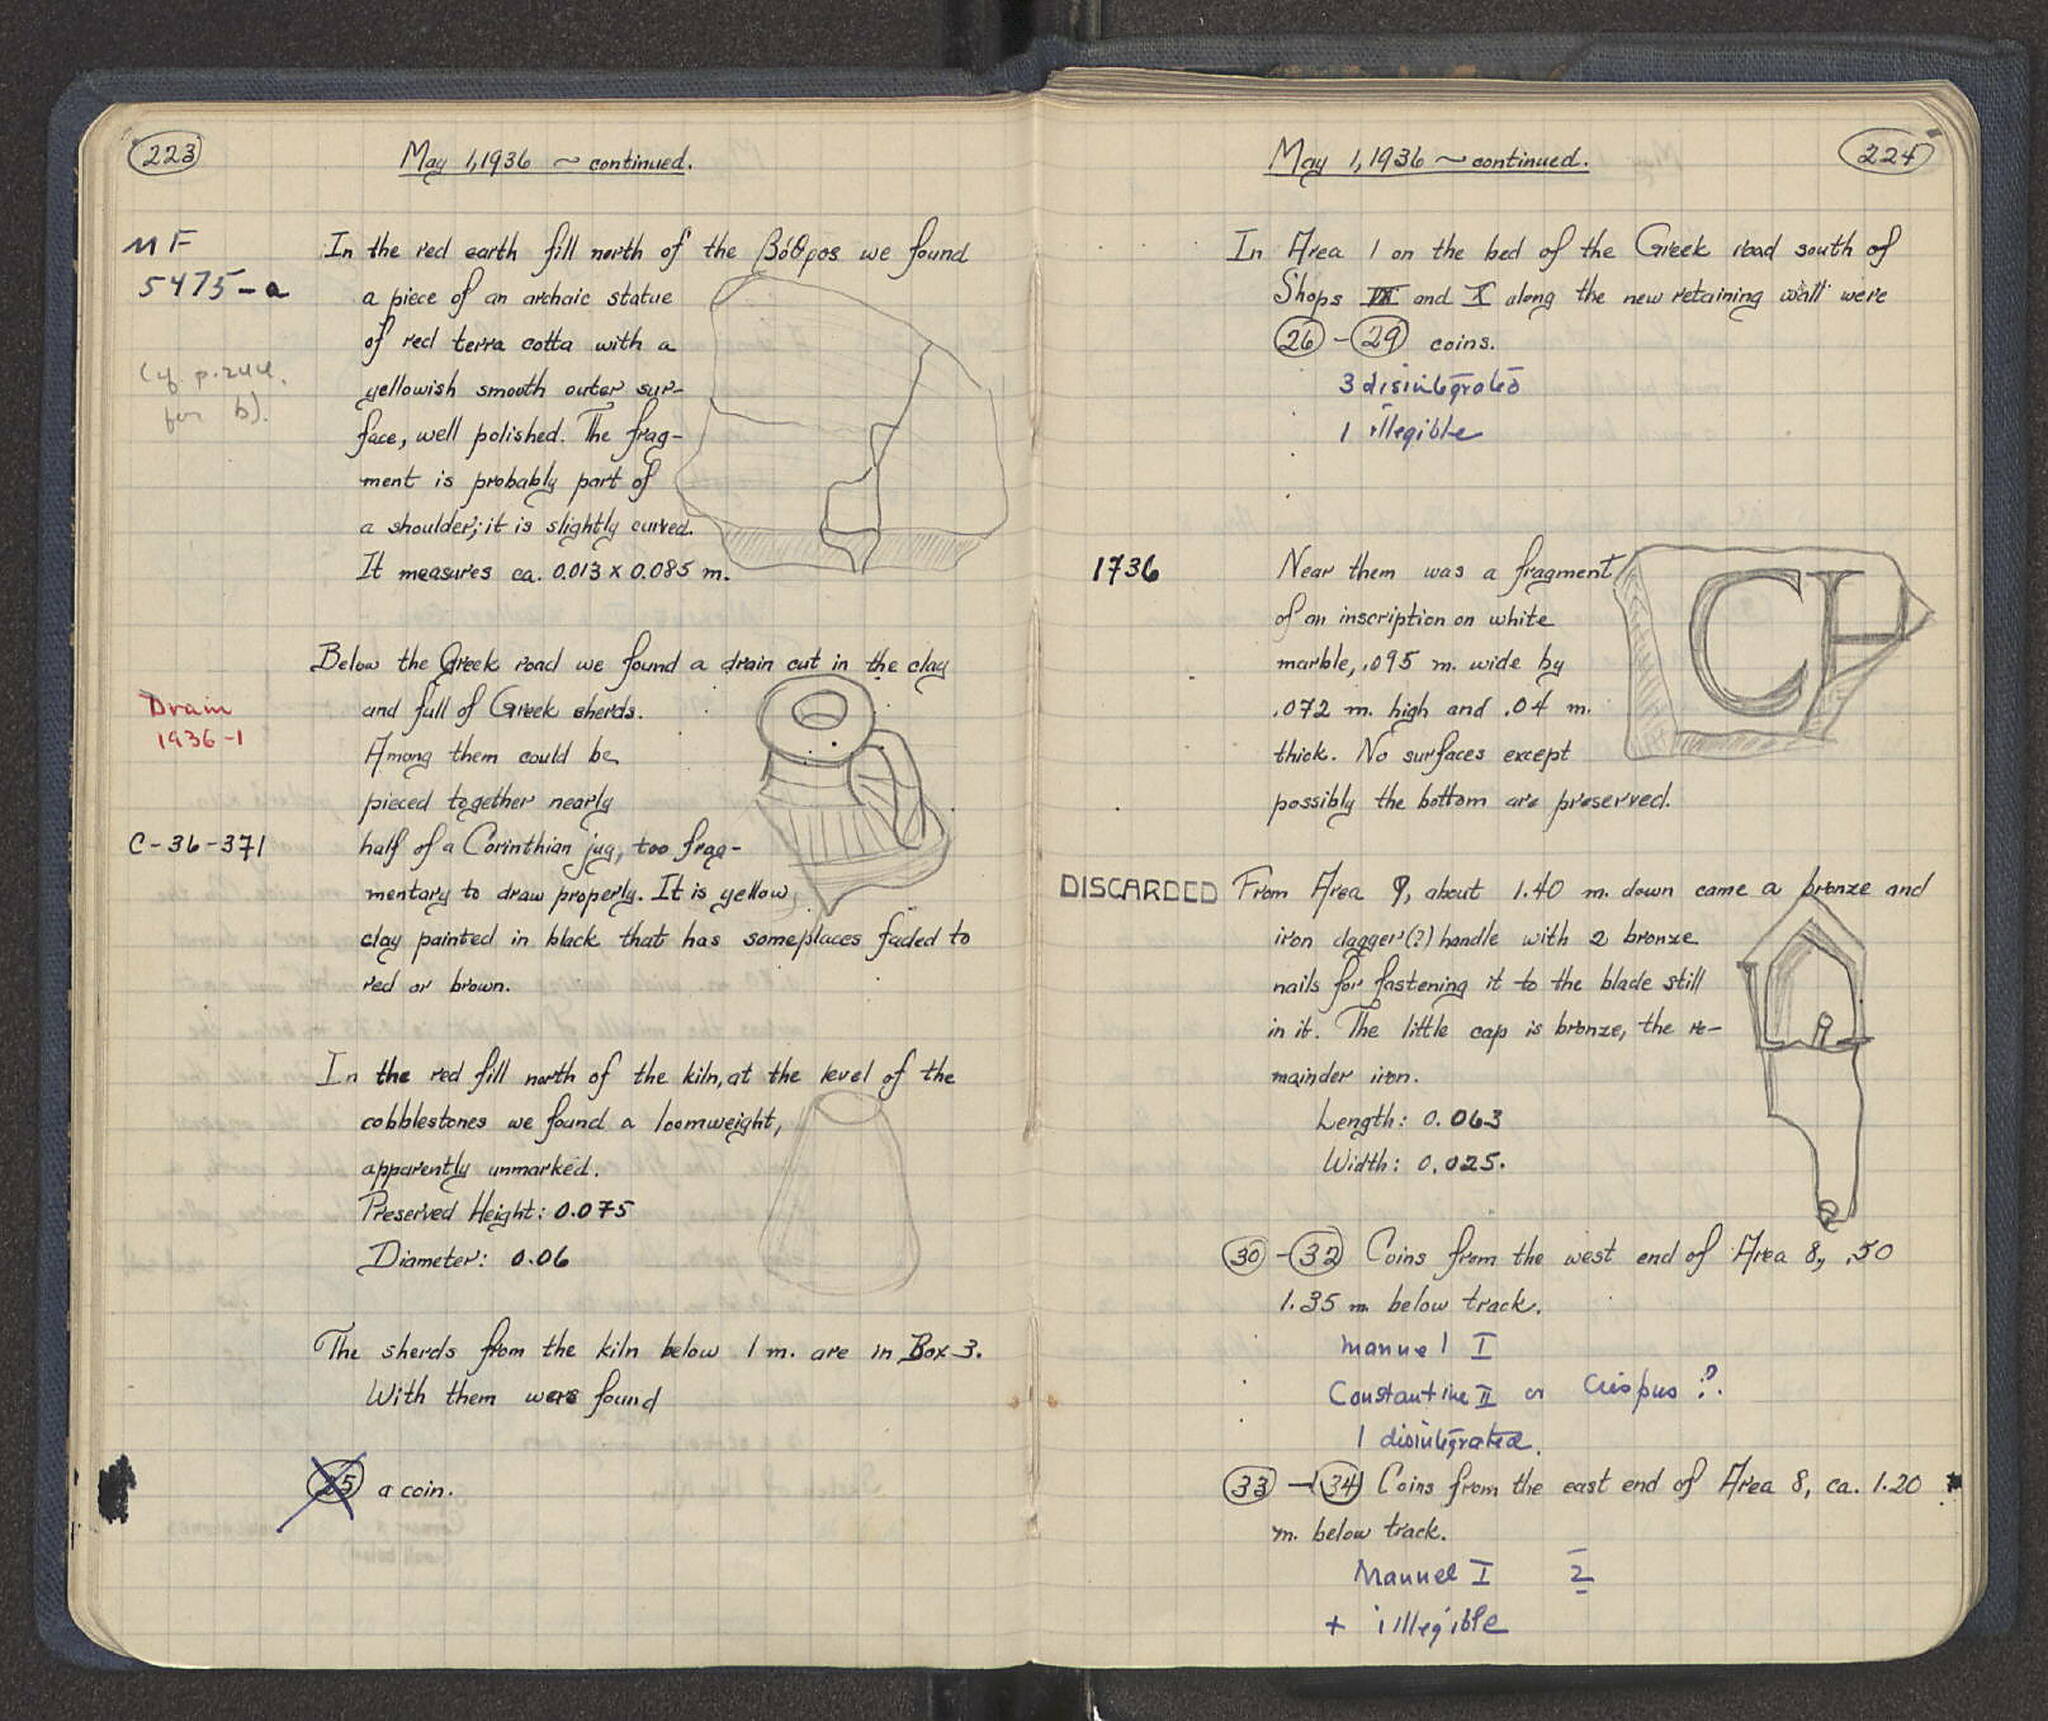 223
May 1, 1936 ~ continued.
MF
5475-a
(cf. p. 244.
for b).
In the red earth fill north of the βόθρος we found
a piece of an archaic statue
of red terra cotta with a
yellowish smooth outer sur-
face, well polished. The frag-
ment is probably part of
a shoulder; it is slightly curved.
It measures ca. 0.013 x 0.085 m.
Below the Greek road we found a drain cut in the clay
Drain
1936-1
and full of Greek sherds.
Among them could be
pieced together nearly
C-36-371
half of a Corinthian jug, too frag-
mentary to draw properly. It is yellow
clay painted in black that has someplaces faded to
red or brown.
In the red fill north of the kiln, at the level of the
cobblestones we found a loomweight,
apparently unmarked.
Preserved Height: 0.075
Diameter: 0.06
The sherds from the kiln below 1 m. are in Box 3.
With them were found
25 a coin.
May 1, 1936 ~ continued.
224
In Area 1 on the bed of the Greek road south of
Shops and X along the new retaining wall were
26 - 29 coins.
3 disintegrated
1 illegible
1736
Near them was a fragment
of an inscription on white
marble, .095 m. wide by
.072 m. high and .04 m.
thick. No surfaces except
possibly the bottom are preserved.
CH
DISCARDED
From Area 9, about 1.40 m. down came a bronze and
iron dagger(?) handle with 2 bronze
nails for fastening it to the blade still
in it. The little cap is bronze, the re-
mainder iron.
Length: 0.063
Width: 0.025.
30 - 32 Coins from the west end of Area 8, .50
1.35 m. below track.
Manuel I
Constantine II or Crispus ?.
1 disintegrated.
33 - 34 Coins from the east end of Area 8, ca. 1.20
m. below track.
Manuel I 2
+ illegible